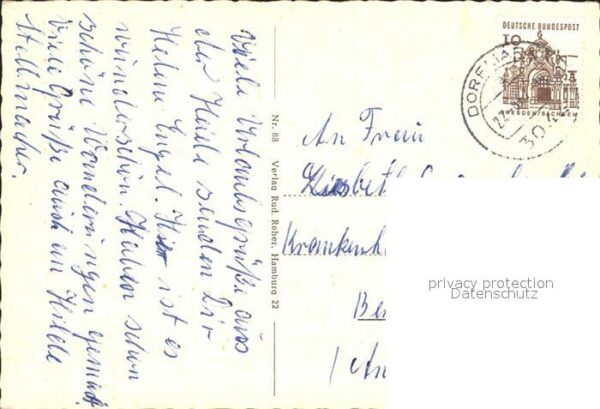 Viele Urlaubsgrüße aus
der Heide senden Dir
Helene Engel. Hier ist es
wunderschön. Haben schon
schöne Wanderungen gemacht.
Viele Grüße auch an Hilde
Stellmacher.
Nr. 88 Verlag Rud. Reher, Hamburg 22
DEUTSCHE BUNDESPOST
10
DRESDEN/SACHSEN
DORFMARK
An Frau
Liesbeth
Krankenh
Be
(An
privacy protection
Datenschutz